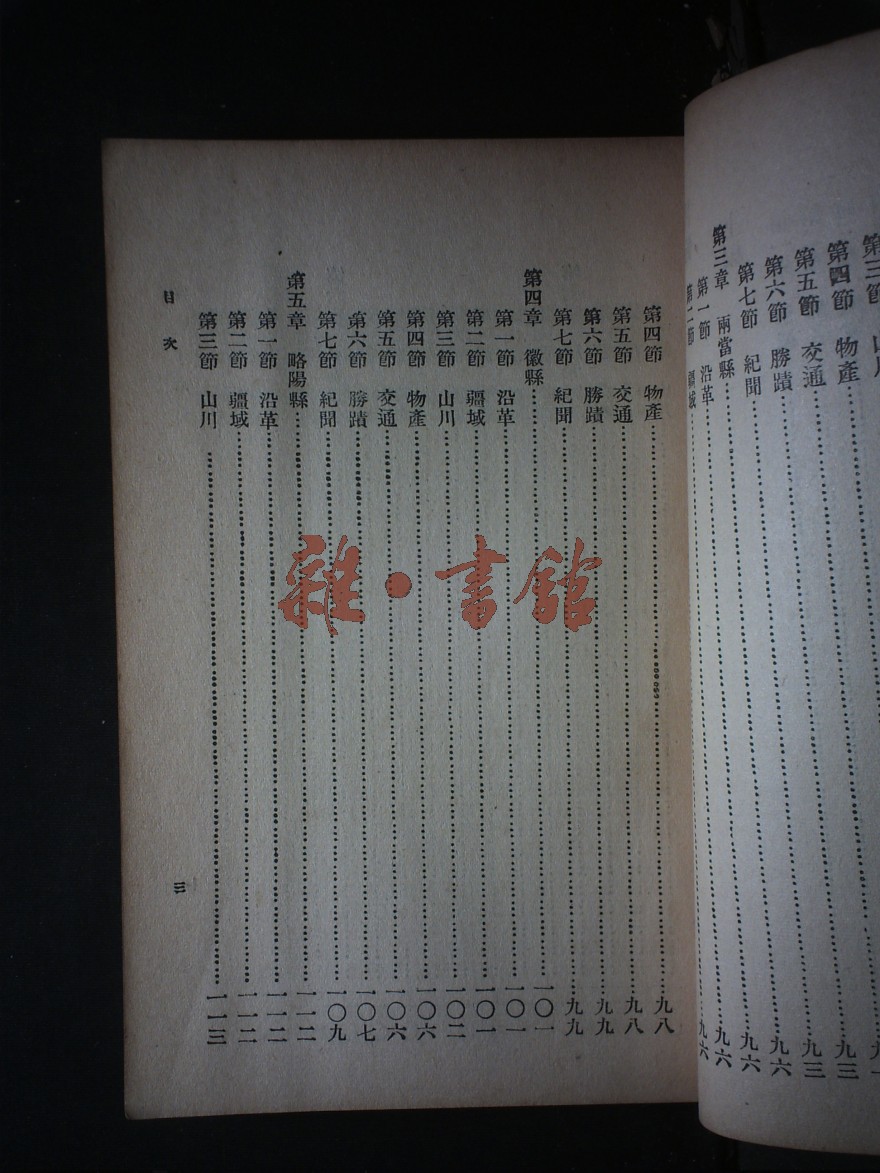 第三節 山川
第四節 物產……九三
第五節 交通……九三
第六節 勝蹟……九六
第七節 紀聞……九六
第三章 兩當縣……九六
第一節 沿革……九六
第二節 疆域
第四節 物產……九八
第五節 交通……九八
第六節 勝蹟……九九
第七節 紀聞……九九
第四章 徽縣……一〇一
第一節 沿革……一〇一
第二節 疆域……一〇一
第三節 山川……一〇二
第四節 物產……一〇六
第五節 交通……一〇六
第六節 勝蹟……一〇七
第七節 紀聞……一〇九
第五章 略陽縣……一一二
第一節 沿革……一一二
第二節 疆域……一一二
第三節 山川……一一三
目次
三
雜·書館